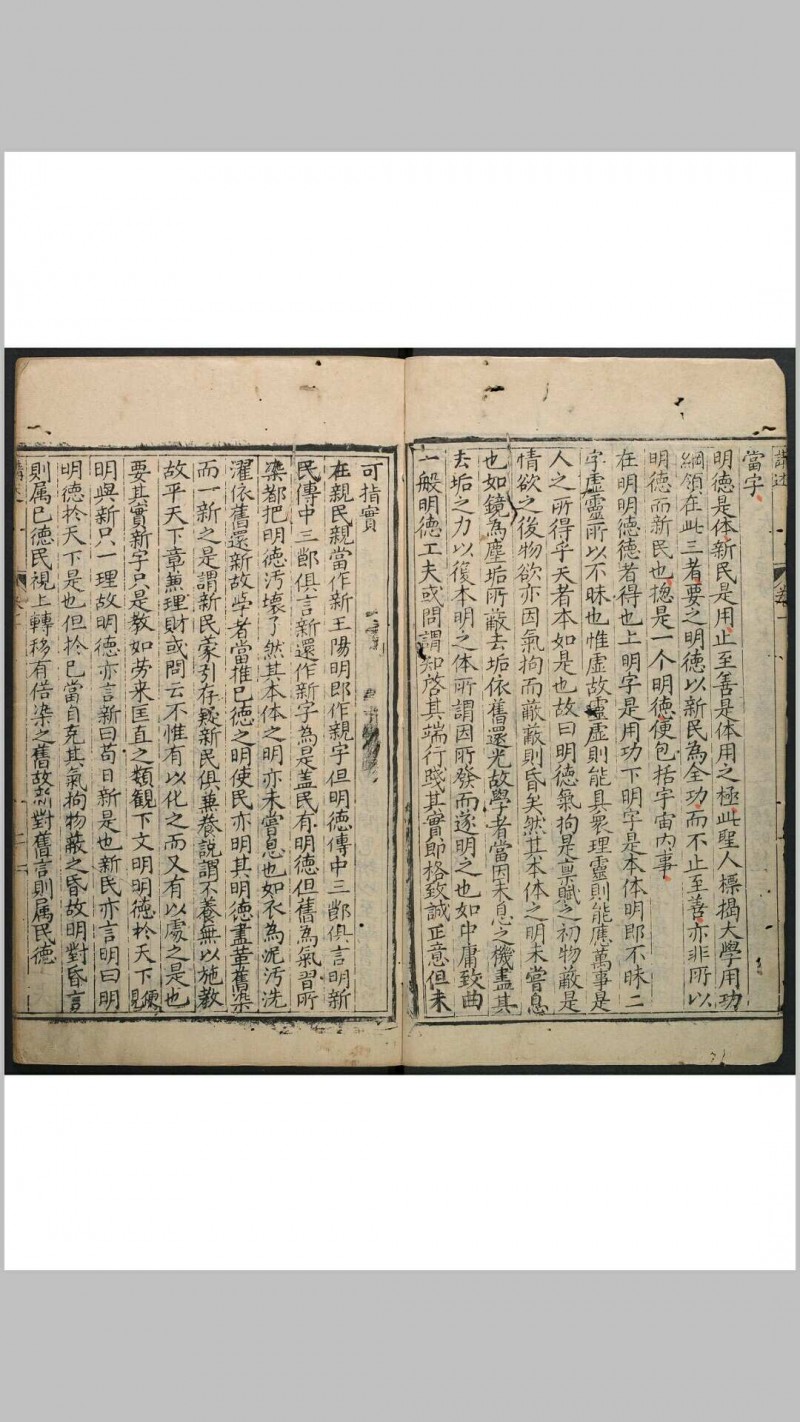 當字
明德是体新民是用止至善是体用之極此聖人標揭大學用功
綱領在此三者要之明德以新民為全功而不止至善亦非所以
明德而新民也揔是一个明德便包括宇宙内事
在明明德德者得也上明字是用功下明字是本体明即不昧二
字虚靈所以不昧也惟虚故靈虚則能具衆理靈則能應萬事是
人之所得乎天者本如是也故曰明德氣拘是禀賦之初物蔽是
情欲之後物欲亦因氣拘而蔽蔽則昏矣然其本体之明未嘗息
也如鏡為塵垢所蔽去垢依舊還光故學者當因未息之機盡其
去垢之力以復本明之体所謂因所發而遂明之也如中庸致曲
一般明德工夫或問謂知啓其端行踐其實即格致誠正意但未
可指實
在親民親當作新王陽明即作親字但明德傳中三節俱言明新
民傳中三節俱言新還作新字為是盖民有明德但舊為氣習所
染都把明德汚壞了然其本体之明亦未嘗息也如衣為泥汚洗
濯依舊還新故学者當推已德之明使民亦明其明德盡革舊染
而一新之是謂新民蒙引存疑新民俱兼養説謂不養無以施教
故平天下章兼理財或問云不惟有以化之而又有以處之是也
要其實新字只是教如劳来匡直之類観下文明明德扵天下便見
明與新只一理故明德亦言新曰苟日新是也新民亦言明曰明
明德扵天下是也但扵已當自克其氣拘物蔽之昏故明對昏言
則属已德民視上轉移有俗染之舊故新對舊言則属民德